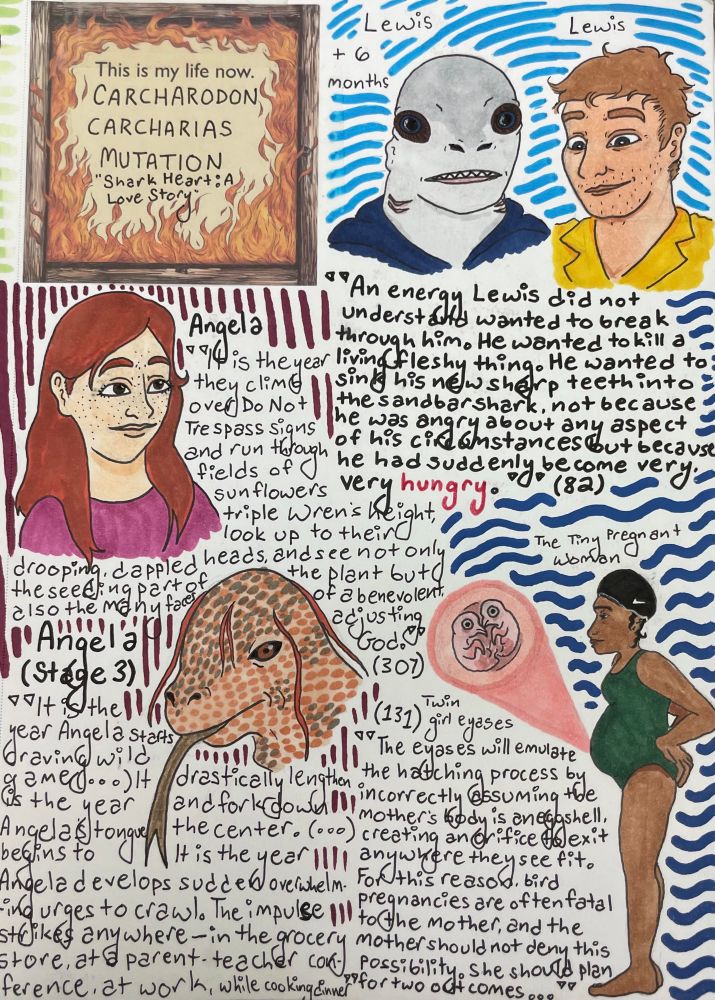 This is my life now.
CARCHARODON
CARCHARIAS
MUTATION
"Shark Heart: A
Love Story"
Lewis
+ 6
months
Lewis
"An energy Lewis did not
understand wanted to break
through him. He wanted to kill a
living fleshy thing. He wanted to
sink his new sharp teeth into
the sandbar shark, not because
he was angry about any aspect
of his circumstances but because
he had suddenly become very,
very hungry." (82)
Angela
"It is the year
they climb
over Do Not
Trespass signs
and run through
fields of
sunflowers
triple Wren's height,
look up to their
drooping, dappled heads, and see not only
the seeding part of the plant but
also the many faces of a benevolent,
adjusting
God."
(307)
Angela
(Stage 3)
"It is the
year Angela starts
craving wild
game (...) It
is the year
Angela's tongue
begins to
drastically lengthen
and fork down
the center. (...)
It is the year
Angela develops sudden overwhelm-
ing urges to crawl. The impulse
strikes anywhere—in the grocery
store, at a parent-teacher con-
ference, at work, while cooking dinner"
The Tiny Pregnant
Woman
(131)
Twin
girl eyases
"The eyases will emulate
the hatching process by
incorrectly assuming the
mother's body is an eggshell,
creating an orifice to exit
anywhere they see fit.
For this reason, bird
pregnancies are often fatal
to the mother, and the
mother should not deny this
possibility. She should plan
for two outcomes..."